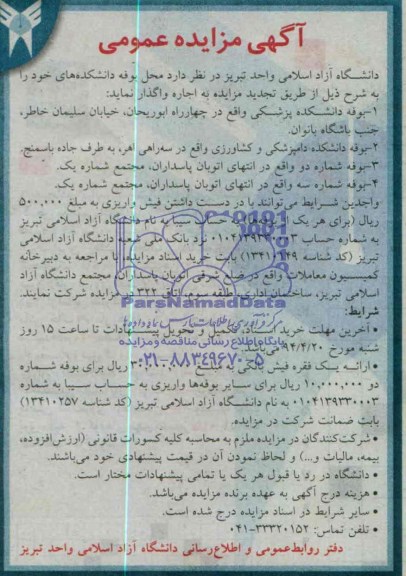 آگهی مزایده عمومی
دانشگاه آزاد اسلامی واحد تبریز در نظر دارد محل بوفه دانشکده‌های خود را
به شرح ذیل از طریق تجدید مزایده به اجاره واگذار نماید:
۱-بوفه دانشکده پزشکی واقع در چهارراه ابوریحان، خیابان سلیمان خاطر،
جنب باشگاه بانوان.
۲-بوفه دانشکده دامپزشکی و کشاورزی واقع در سه‌راهی اهر، به طرف جاده باسمنج.
۳-بوفه شماره دو واقع در انتهای اتوبان پاسداران، مجتمع شماره یک.
۴-بوفه شماره سه واقع در انتهای اتوبان پاسداران، مجتمع شماره یک.
واجدین شرایط می‌توانند با در دست داشتن فیش واریزی به مبلغ ۵۰۰,۰۰۰
ریال (برای هر یک از حساب سیبا به نام دانشگاه آزاد اسلامی تبریز
به شماره حساب نزد بانک ملی شعبه دانشگاه آزاد اسلامی
تبریز (کد شناسه بابت خرید اسناد مزایده، با مراجعه به دبیرخانه
کمیسیون معاملات واقع در ضلع شرقی اتوبان پاسداران، مجتمع دانشگاه آزاد
اسلامی تبریز، ساختمان اداری، طبقه سوم، اتاق ۳۲۲ در مزایده شرکت نمایند.
شرایط:
• آخرین مهلت خرید اسناد، تکمیل و تحویل پیشنهادات تا ساعت ۱۵ روز
شنبه مورخ ۹۴/۴/۲۰ می‌باشد.
• ارائه یک فقره فیش بانکی به مبلغ ریال برای بوفه شماره
دو ۱۰,۰۰۰,۰۰۰ ریال برای سایر بوفه‌ها واریزی به حساب سیبا به شماره
۰۱۰۴۱۳۹۳۳۰۰۰۳ به نام دانشگاه آزاد اسلامی تبریز (کد شناسه ۱۳۴۱۰۲۵۷)
بابت ضمانت شرکت در مزایده.
• شرکت‌کنندگان در مزایده ملزم به محاسبه کلیه کسورات قانونی (ارزش‌افزوده،
بیمه، مالیات و...) و لحاظ نمودن آن در قیمت پیشنهادی خود می‌باشند.
• دانشگاه در رد یا قبول هر یک یا تمامی پیشنهادات مختار است.
• هزینه درج آگهی به عهده برنده مزایده می‌باشد.
• سایر شرایط در اسناد مزایده درج شده است.
• تلفن تماس: ۳۳۳۲۰۱۵۲-۰۴۱
دفتر روابط‌عمومی و اطلاع‌رسانی دانشگاه آزاد اسلامی واحد تبریز
ParsNamadData
پایگاه اطلاع رسانی مناقصه و مزایده
۰۲۱-۸۸۳۴۹۶۷۰-۵